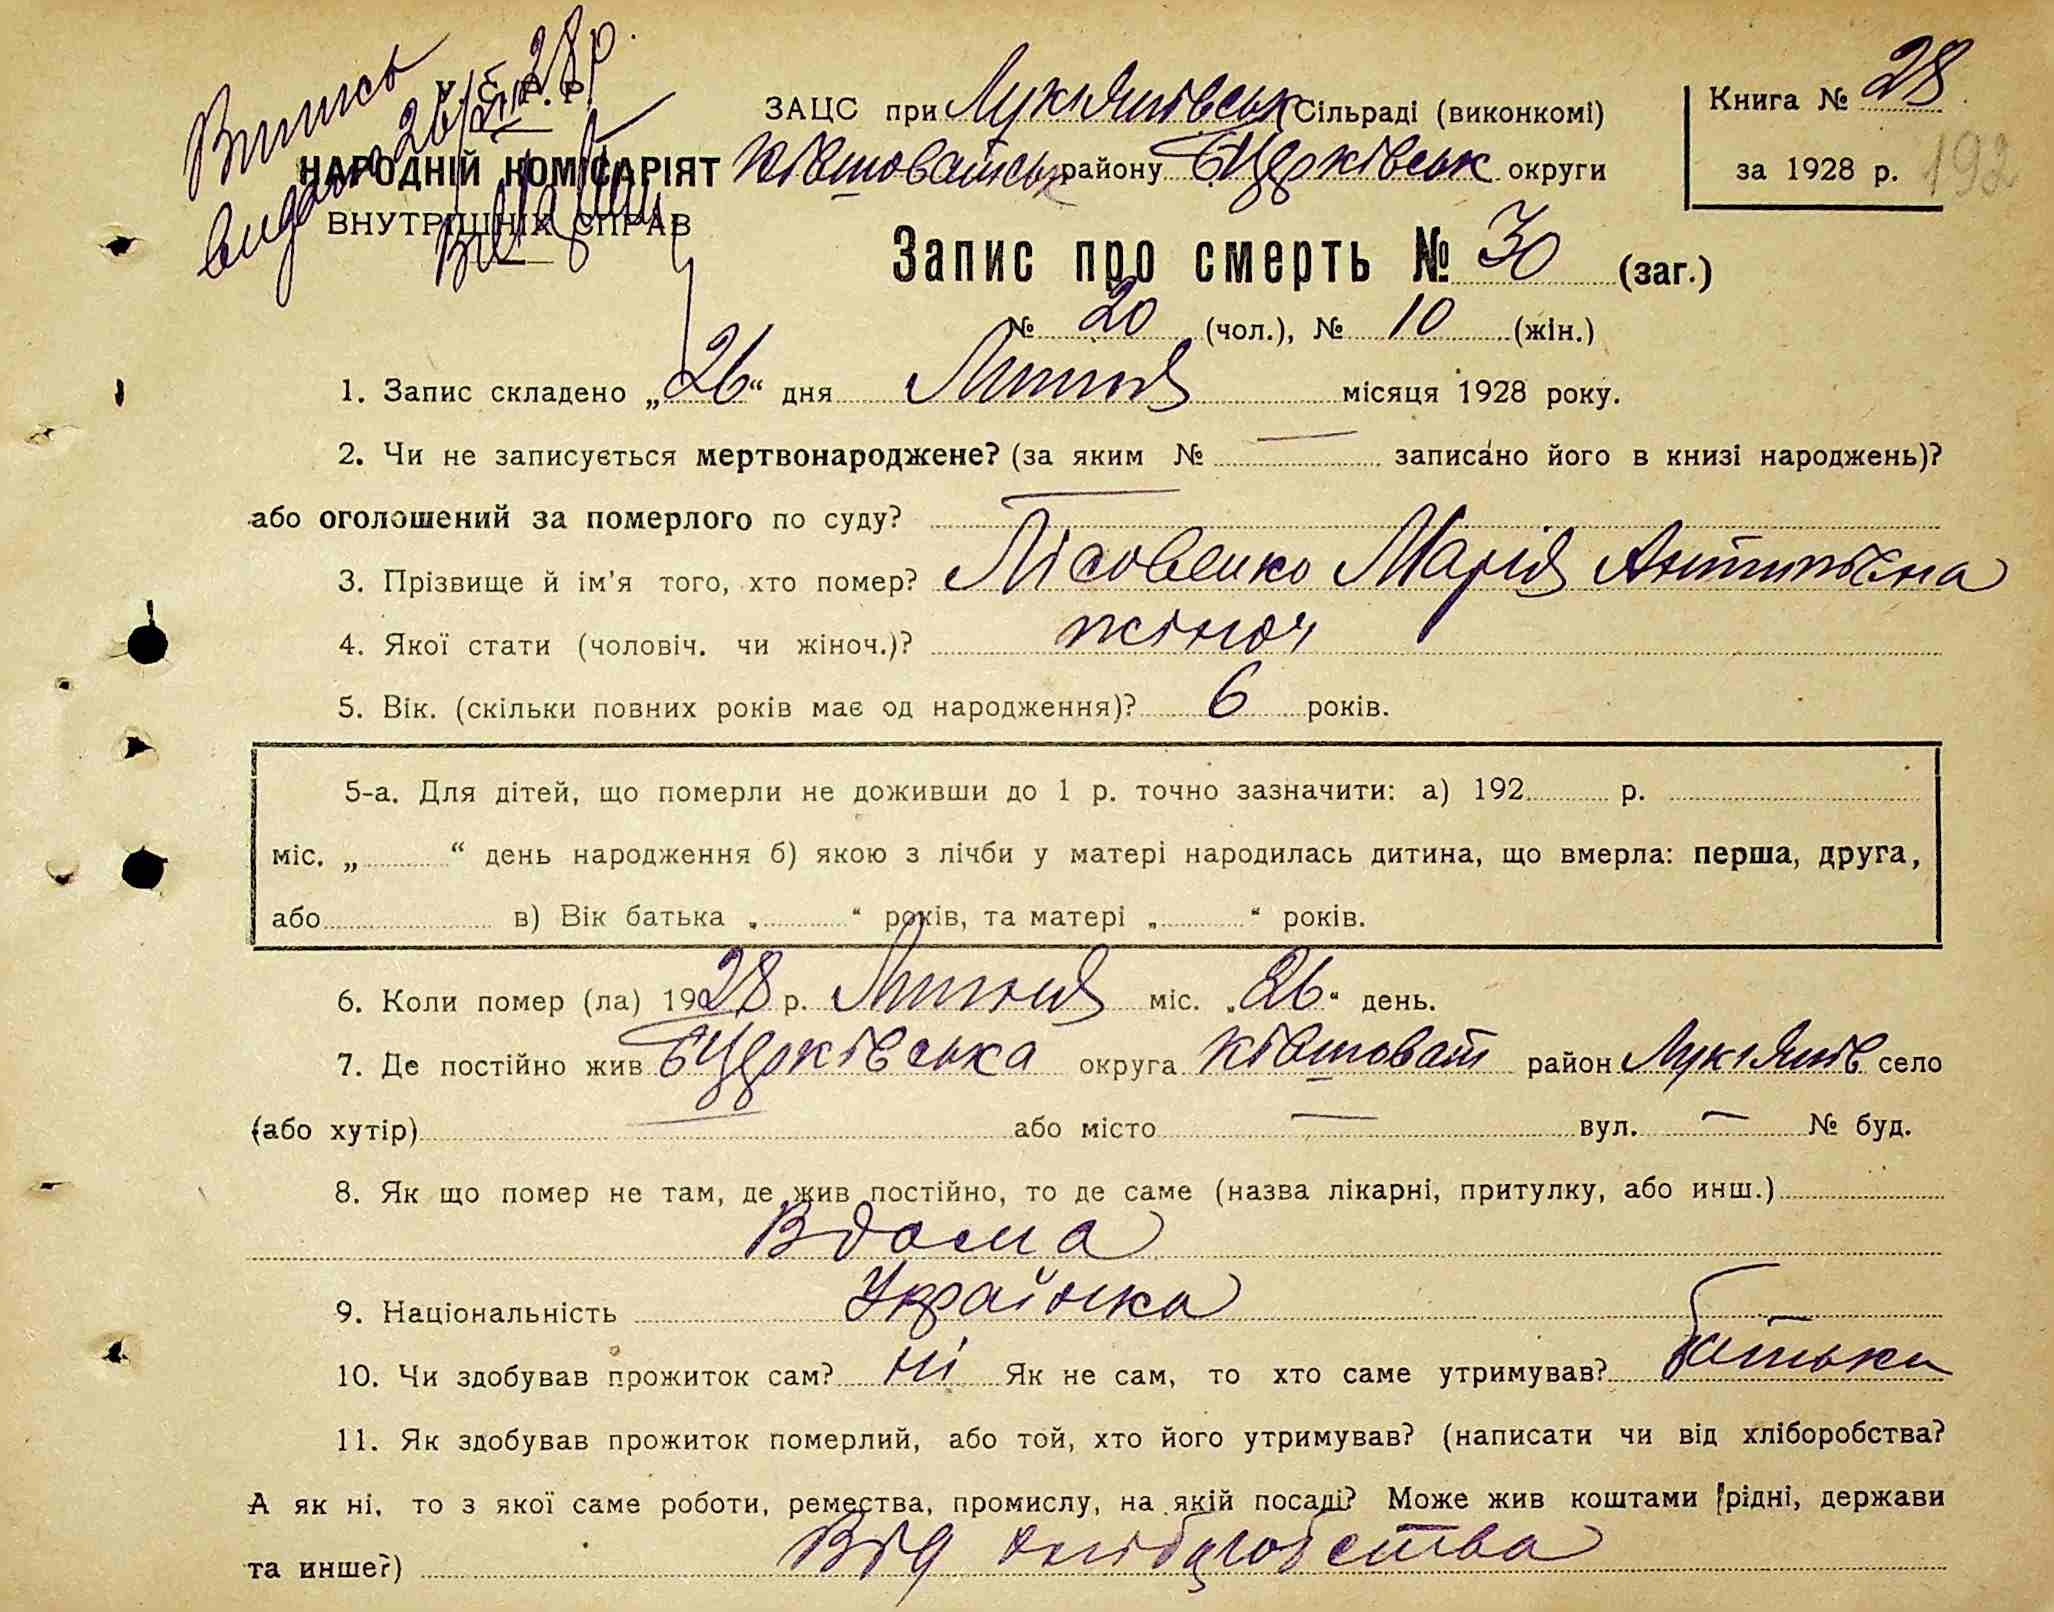 Випись
видана 26/VII 28 р.
У. С. Р. Р.
НАРОДНІЙ КОМІСАРІЯТ
ВНУТРІШНІХ СПРАВ
ЗАЦС при Лукіянівськ Сільраді (виконкомі)
Ківшоватськ району БЦерківськ округи
Книга № 28
за 1928 р. 192
Запис про смерть № 30 (заг.)
№ 20 (чол.), № 10 (жін.)
1. Запис складено „26“ дня Липня місяця 1928 року.
2. Чи не записується мертвонароджене? (за яким № — записано його в книзі народжень)?
або оголошений за померлого по суду? —
3. Прізвище й ім'я того, хто помер? Лісовенко Марія Антипівна
4. Якої стати (чоловіч. чи жіноч.)? жіноч
5. Вік. (скільки повних років має од народження)? 6 років.
5-а. Для дітей, що померли не доживши до 1 р. точно зазначити: а) 192 р.
міс. „ “ день народження б) якою з лічби у матері народилась дитина, що вмерла: перша, друга,
або в) Вік батька „ “ років, та матері „ “ років.
6. Коли помер (ла) 1928 р. Липня міс. „26“ день.
7. Де постійно жив БЦерківська округа Ківшоват район Лукіянів село
(або хутір) — або місто — вул. — № буд.
8. Як що помер не там, де жив постійно, то де саме (назва лікарні, притулку, або инш.)
Вдома
9. Національність Українка
10. Чи здобував прожиток сам? ні Як не сам, то хто саме утримував? батьки
11. Як здобував прожиток померлий, або той, хто його утримував? (написати чи від хліборобства?
А як ні, то з якої саме роботи, ремества, промислу, на якій посаді? Може жив коштами рідні, держави
та инше?) Від хліборобства